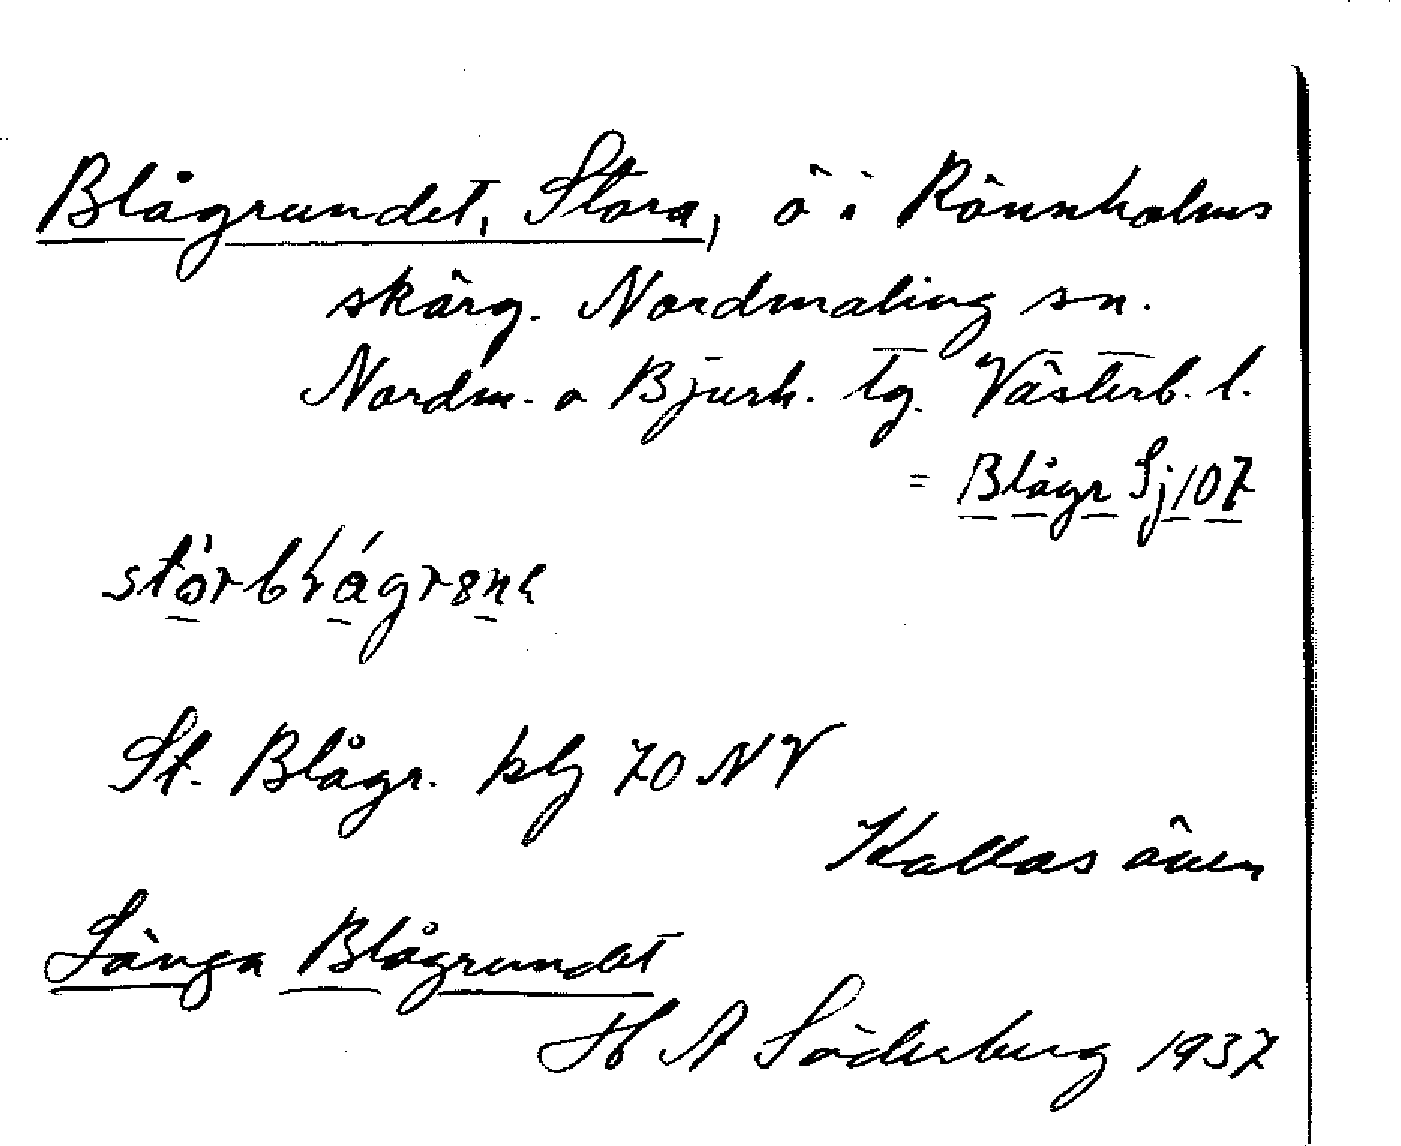 Blågrundet, Stora, ö i Rönnholms
skärg. Nordmaling sn.
Nordm. o Bjurh. tg. Västerb. l.
= Blågr Sj 107
St. Blågr. plg 70 NV
Kallas även
Långa Blågrundet
H A Söderberg 1937